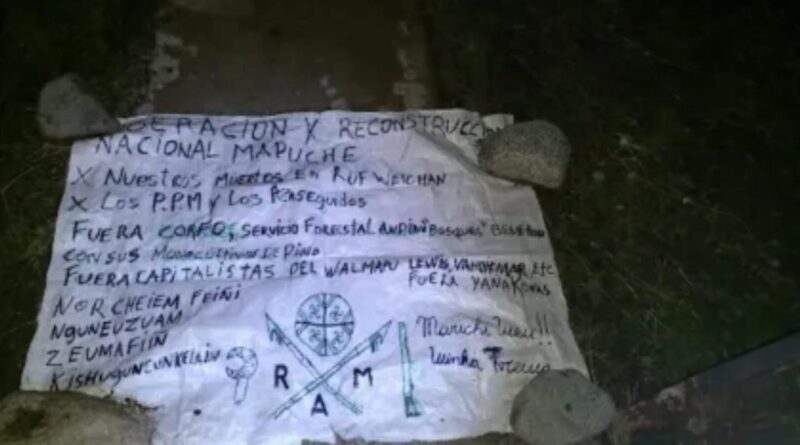 ERACION X RECONSTRUCCI
NACIONAL MAPUCHE
X NUESTROS MUERTOS EN RUF WEICHAN
X LOS P.P.M Y LOS PERSEGUIDOS
FUERA CORFO, SERVICIO FORESTAL ANDINO "BOSQUES"
CON SUS DE PINO
FUERA CAPITALISTAS DEL WALMAPU LEWIS, VANDHEMAR, ETC
FUERA YANAKONAS
NOR CHEIEM FEIÑI
NGUNEUZUAM
ZEUMAFIIÑ
KISHUGUNEUNKELEAIÑ
Marichi Weu!!
R A M